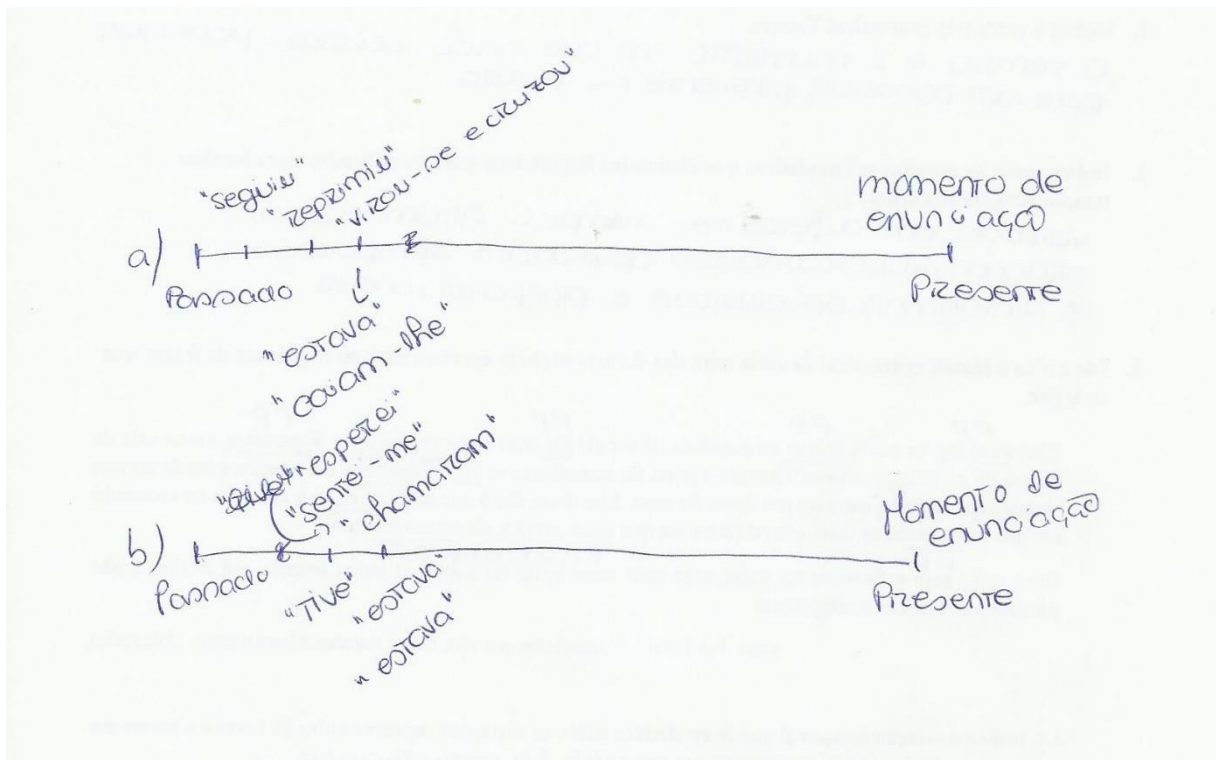 "seguiu"
"reprimiu"
"virou-se e cruzou"
momento de
enunciação
a)
Passado
Presente
"estava"
"caiam-lhe"
"esperei"
"senti-me"
"chamaram"
Momento de
enunciação
b)
Passado
"TIVE"
"estava"
"estava"
Presente